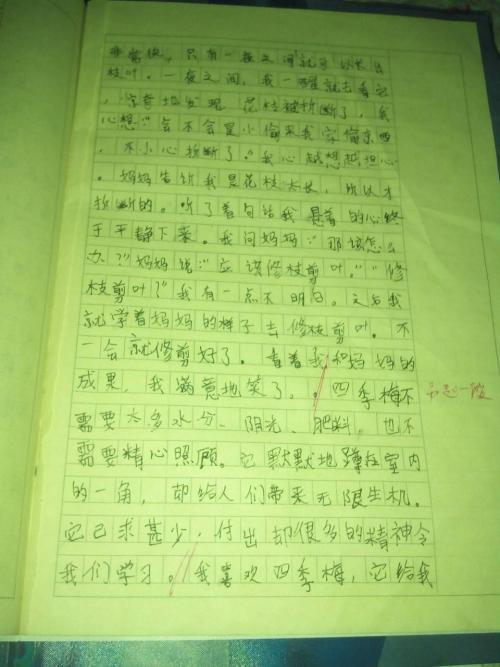 非常快，只有一夜之间就可以长出
枝叶。一夜之间，我一醒就去看它
，惊奇地发现花枝被折断了，我
心想：“会不会是小偷来我家偷东西
，不小心折断了。”我心越想越担心
。妈妈告诉我是花枝太长，所以才
折断的。听了着句话我悬着的心终
于平静下来。我问妈妈：“那该怎么
办？”妈妈说：“应该修枝剪叶。”“修
枝剪叶？”我有一点不明白。之后我
就学着妈妈的样子去修枝剪叶。不
一会就修剪好了。看着我和妈妈的
成果，我满意地笑了。四季梅不
需要太多水分、阳光、肥料，也不
需要精心照顾。它默默地蹲在室内
的一角，却给人们带来无限生机。
它己求甚少，付出却很多的精神令
我们学习。我喜欢四季梅，它给我
另起一段